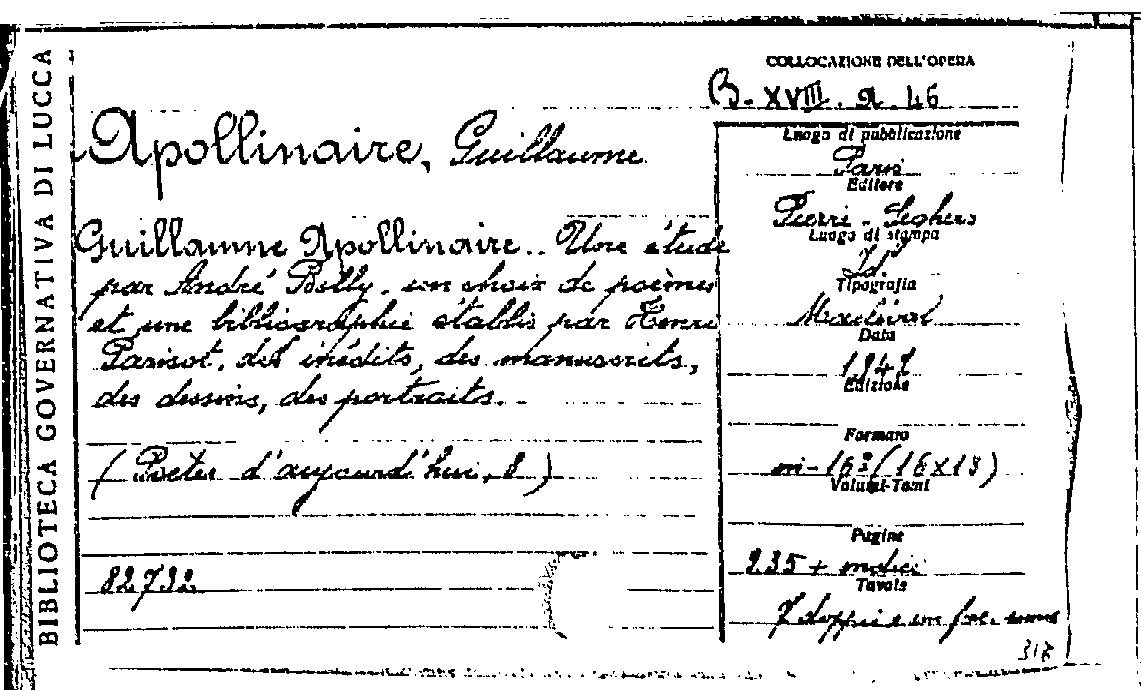 BIBLIOTECA GOVERNATIVA DI LUCCA
COLLOCAZIONE DELL'OPERA
B. XVIII. a. 46
Apollinaire, Guillaume
Guillaume Apollinaire.. Une étude
par André Billy. un choix de poèmes
et une bibliographie établis par Henri
Parisot. des inédits, des manuscrits,
des dessins, des portraits.
(Poetes d'aujourd'hui, 8)
82732
Luogo di pubblicazione
Paris
Editore
Pierre Seghers
Luogo di stampa
Id.
Tipografia
Data
1947
Edizione
Formato
in-16º (16x13)
Volumi-Tomi
Pagine
235 + indici
Tavole